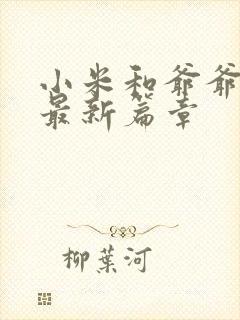 小米和爷爷
最新篇章
柳葉河